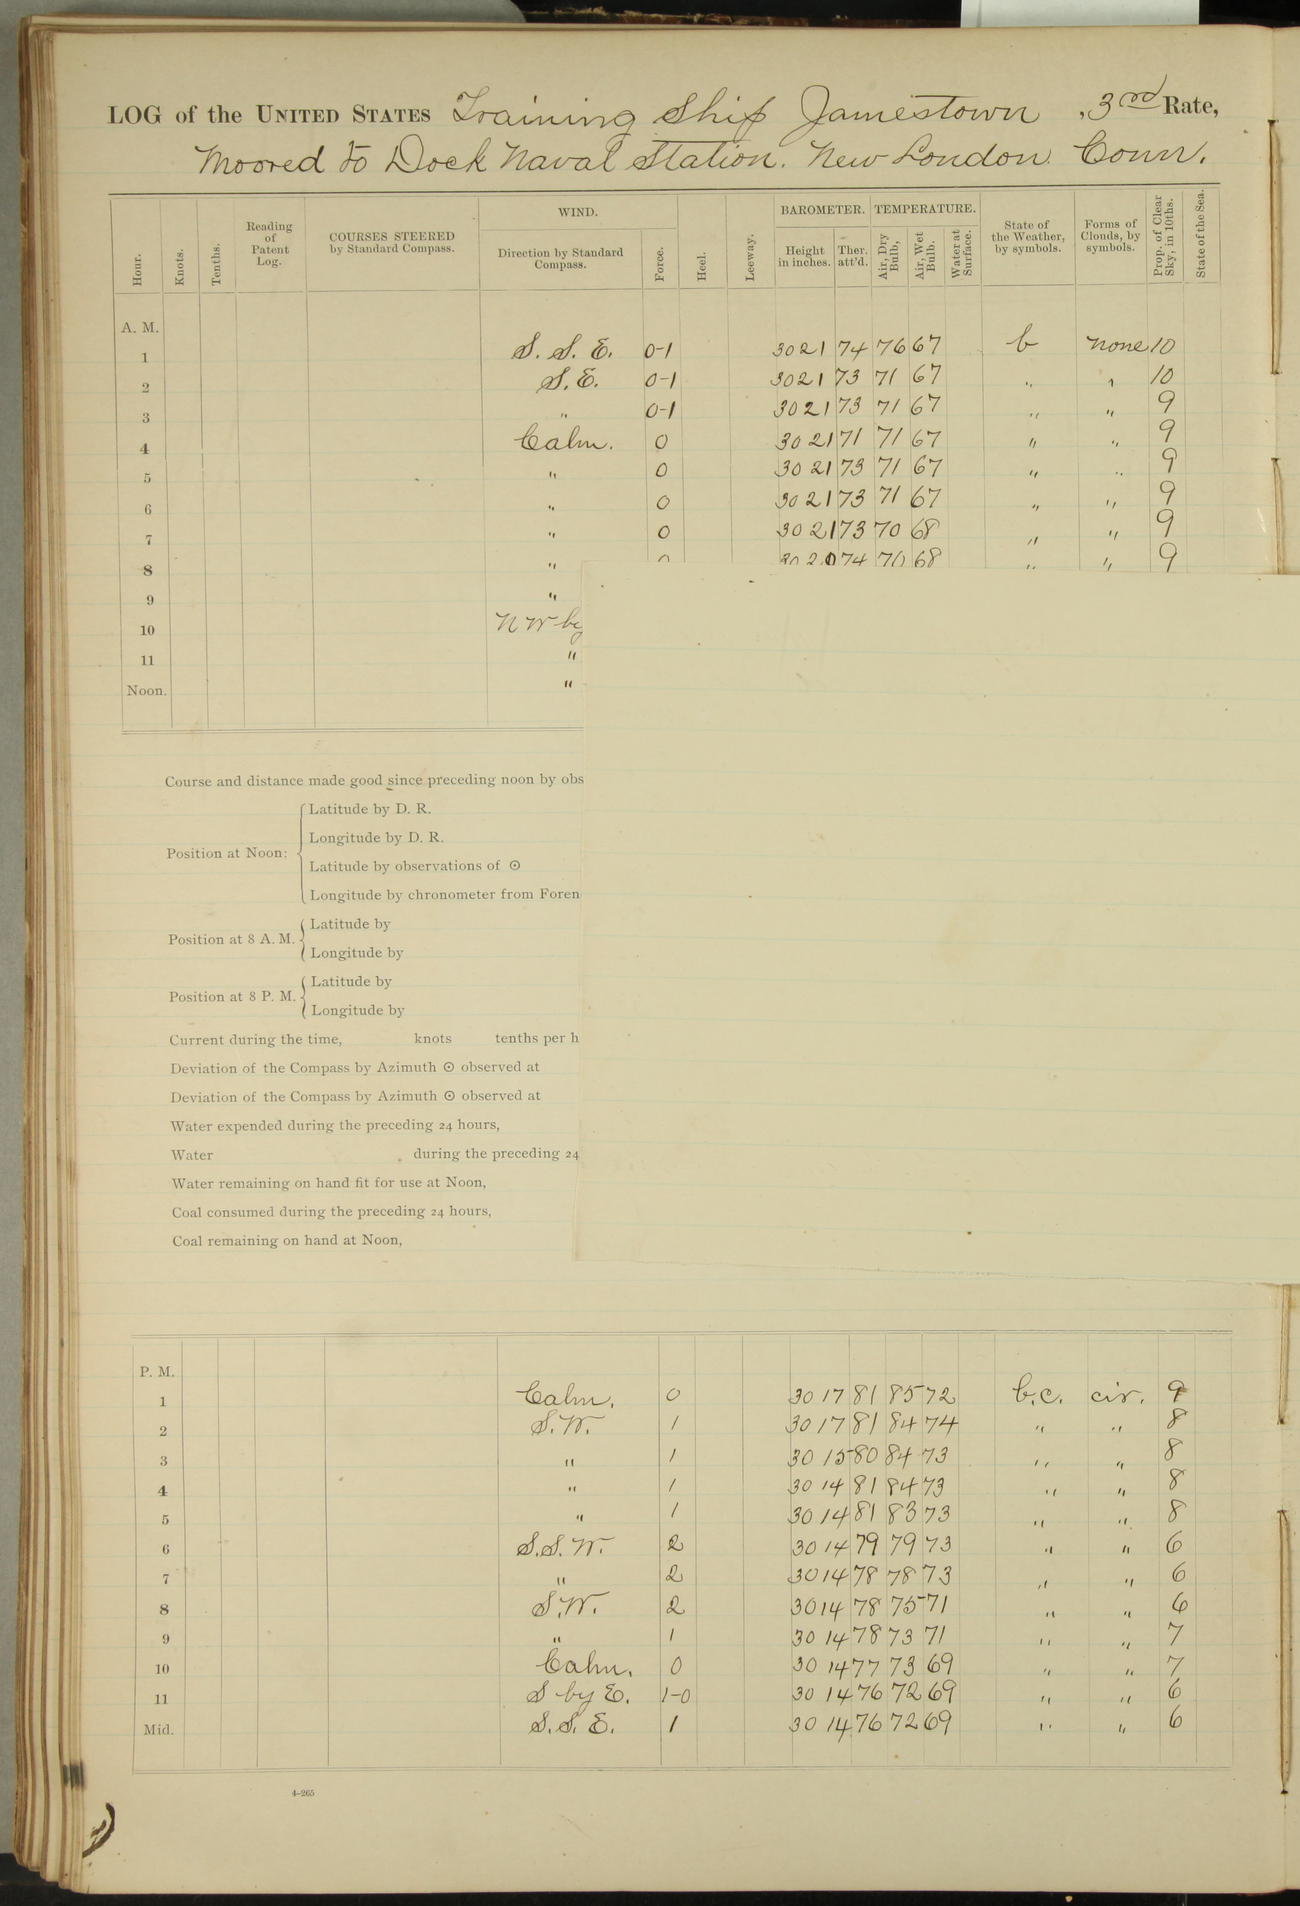 LOG of the UNITED STATES Training Ship Jamestown , 3rd Rate,
Moored to Dock Naval Station. New London Conn.
WIND. BAROMETER. TEMPERATURE.
Hour. Knots. Tenths. Reading of Patent Log. COURSES STEERED by Standard Compass. Direction by Standard Compass. Force. Heel. Leeway. Height in inches. Ther. att'd. Air, Dry Bulb, Air, Wet Bulb. Water at Surface. State of the Weather, by symbols. Forms of Clouds, by symbols. Prop. of Clear Sky, in 10ths. State of the Sea.
A. M.
1 S. S. E. 0-1 30 21 74 76 67 b none 10
2 S. E. 0-1 30 21 73 71 67 " " 10
3 " 0-1 30 21 73 71 67 " " 9
4 Calm. 0 30 21 71 71 67 " " 9
5 " 0 30 21 73 71 67 " " 9
6 " 0 30 21 73 71 67 " " 9
7 " 0 30 21 73 70 68 " " 9
8 " 0 30 20 74 70 68 " " 9
9 "
10 N W by
11 "
Noon. "
Course and distance made good since preceding noon by obs
Position at Noon:
Latitude by D. R.
Longitude by D. R.
Latitude by observations of ⊙
Longitude by chronometer from Foren
Position at 8 A. M.
Latitude by
Longitude by
Position at 8 P. M.
Latitude by
Longitude by
Current during the time, knots tenths per h
Deviation of the Compass by Azimuth ⊙ observed at
Deviation of the Compass by Azimuth ⊙ observed at
Water expended during the preceding 24 hours,
Water during the preceding 24
Water remaining on hand fit for use at Noon,
Coal consumed during the preceding 24 hours,
Coal remaining on hand at Noon,
P. M.
1 Calm. 0 30 17 81 85 72 b.c. cir. 9
2 S. W. 1 30 17 81 84 74 " " 8
3 " 1 30 15 80 84 73 " " 8
4 " 1 30 14 81 84 73 " " 8
5 " 1 30 14 81 83 73 " " 8
6 S. S. W. 2 30 14 79 79 73 " " 6
7 " 2 30 14 78 78 73 " " 6
8 S. W. 2 30 14 78 75 71 " " 6
9 " 1 30 14 78 73 71 " " 7
10 Calm. 0 30 14 77 73 69 " " 7
11 S by E. 1-0 30 14 76 72 69 " " 6
Mid. S. S. E. 1 30 14 76 72 69 " " 6
4-265